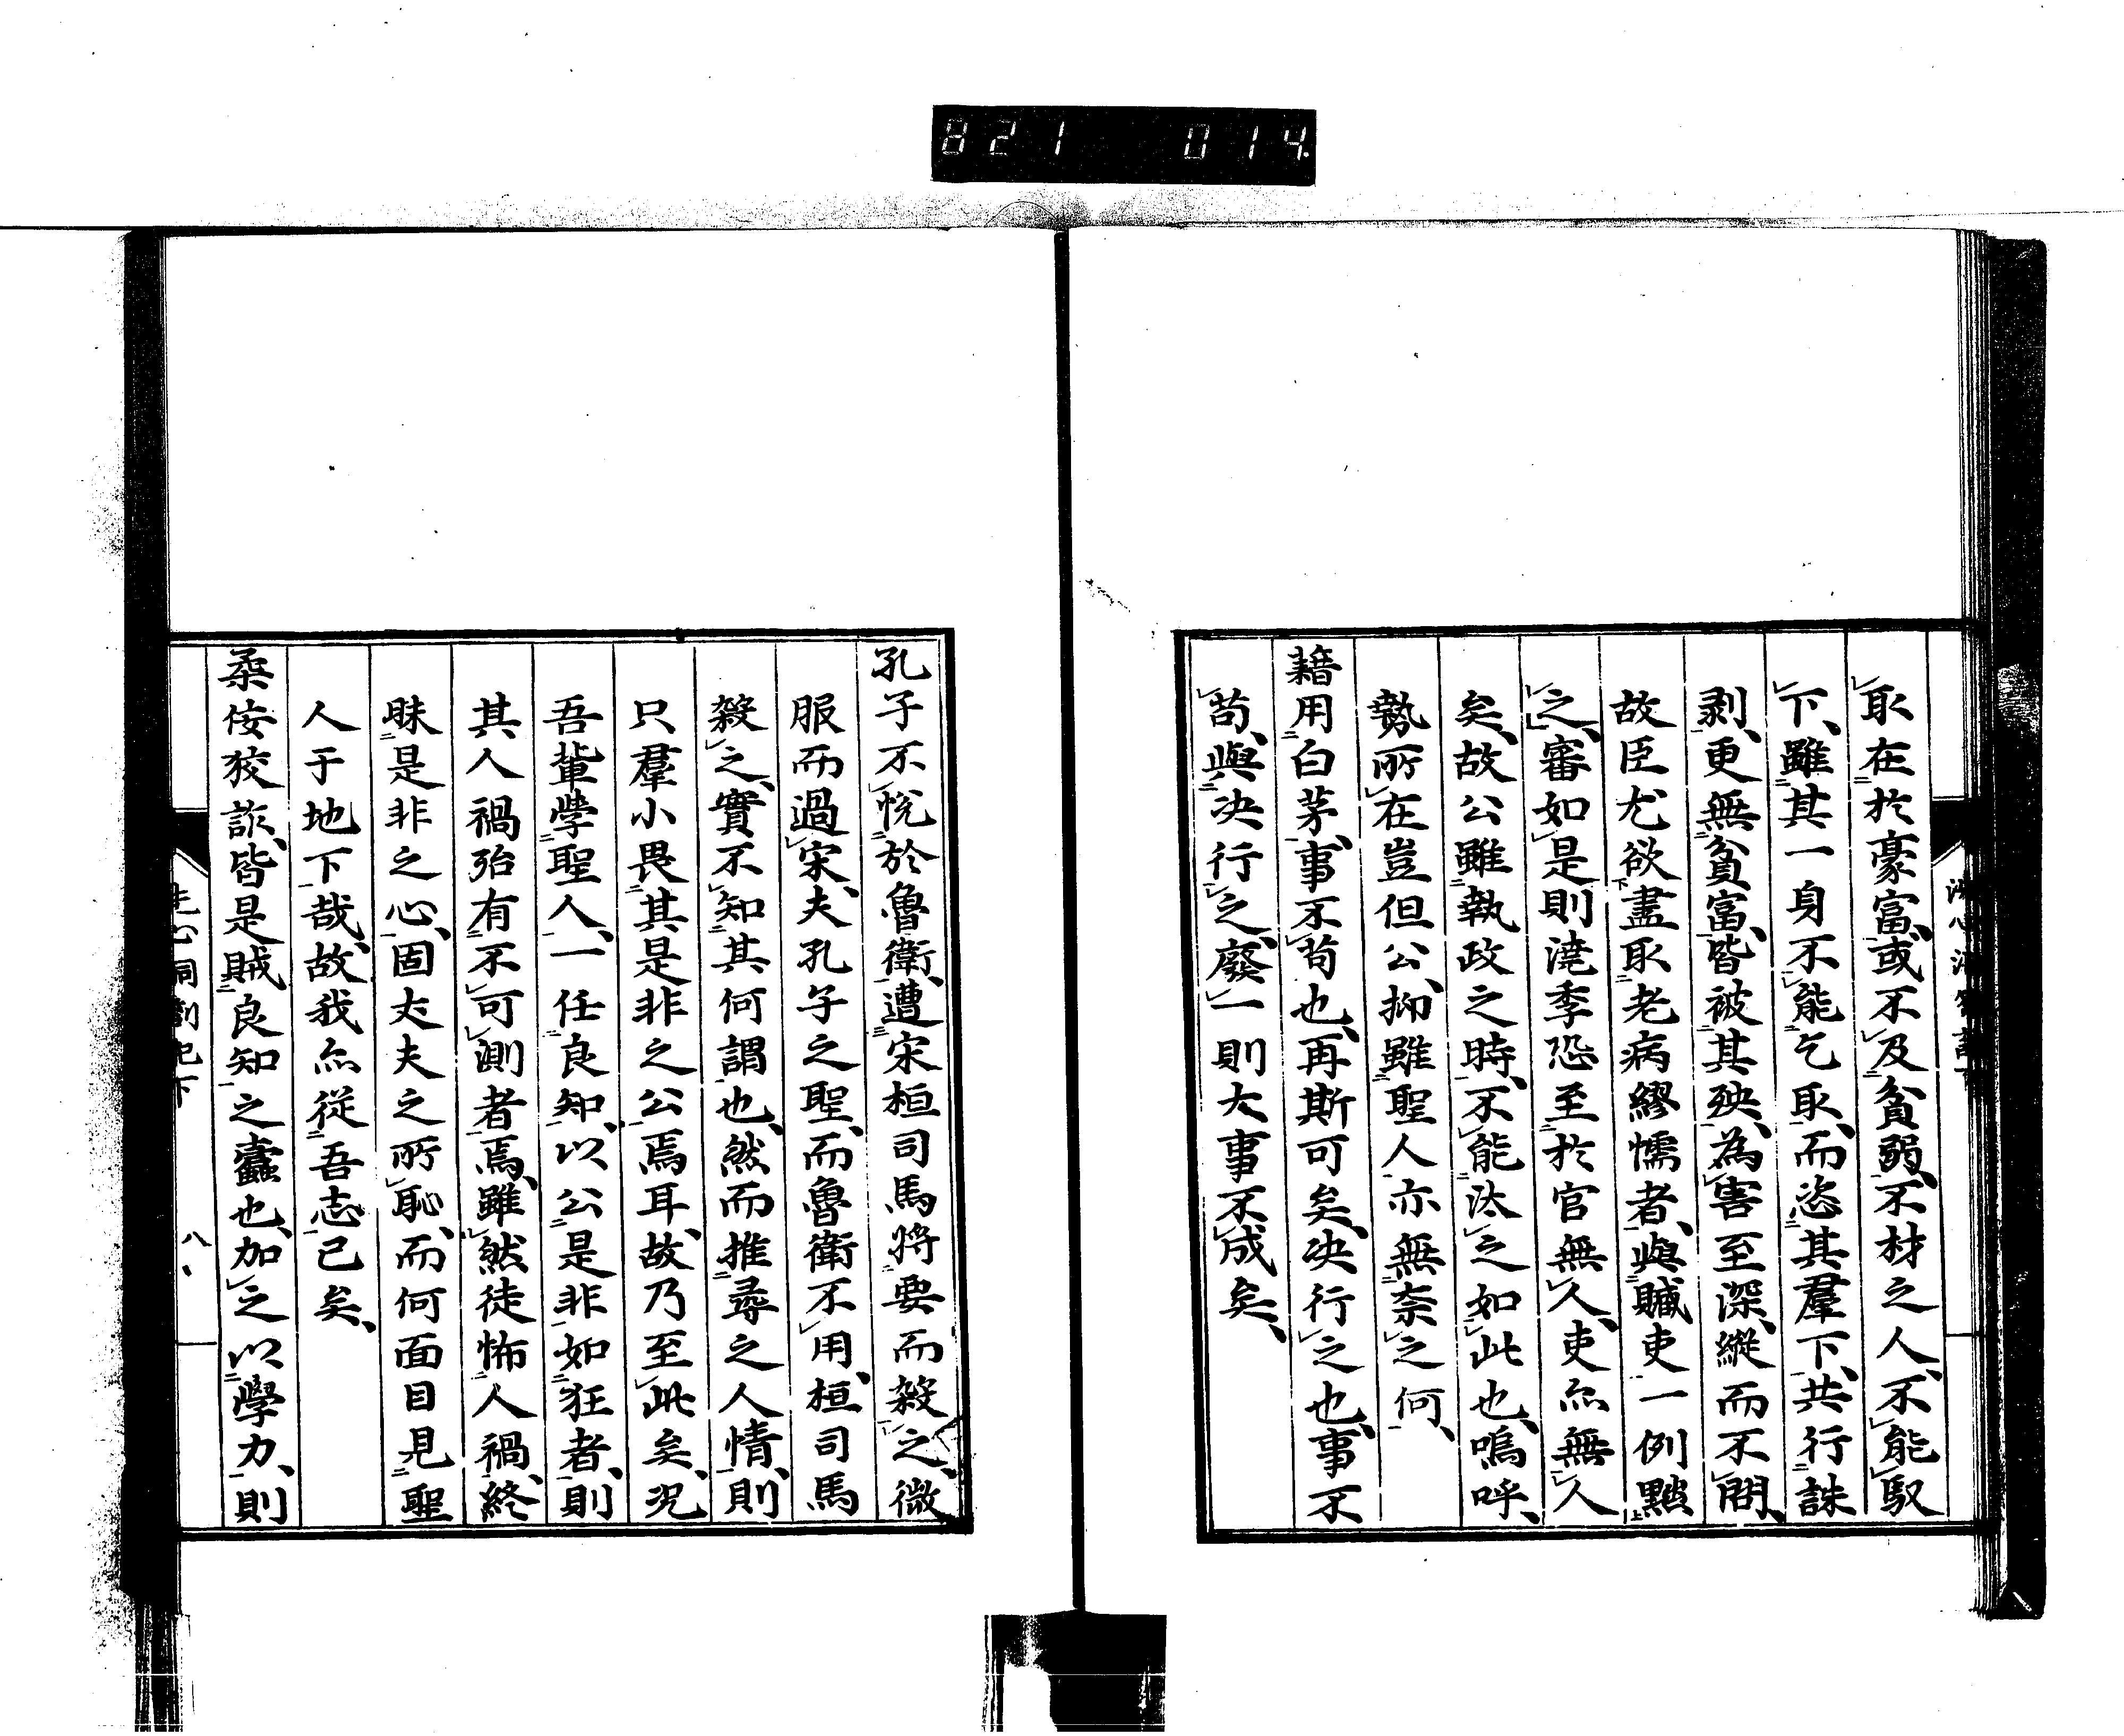 821 014.
取在於豪富、或不及貧弱、不材之人、不能馭
下、雖其一身不能乞取、而恣其羣下、共行誅
剥、更無貧富、皆被其殃、為害至深、縱而不問、
故臣尤欲盡取老病繆懦者、與贓吏一例黜
之、審如是則澆季恐至於官無人、吏亦無人
矣、故公雖執政之時、不能汰之如此也、嗚呼、
勢所在豈但公、抑雖聖人亦無奈之何、
藉用白茅、事不苟也、再斯可矣、决行之也、事不
苟、與决行之、廢一則大事不成矣、
孔子不悅於魯衛、遭宋桓司馬將要而殺之、微
服而過宋、夫孔子之聖、而魯衛不用、桓司馬
殺之、實不知其何謂也、然而推尋之人情、則
只羣小畏其是非之公焉耳、故乃至此矣、况
吾輩學聖人、一任良知、以公是非、如狂者、則
其人禍殆有不可測者焉、雖然徒怖人禍、終
昧是非之心、固丈夫之所恥、而何面目見聖
人于地下哉、故我亦從吾志已矣、
柔佞狡詐、皆是賊良知之蠹也、加之以學力、則
八